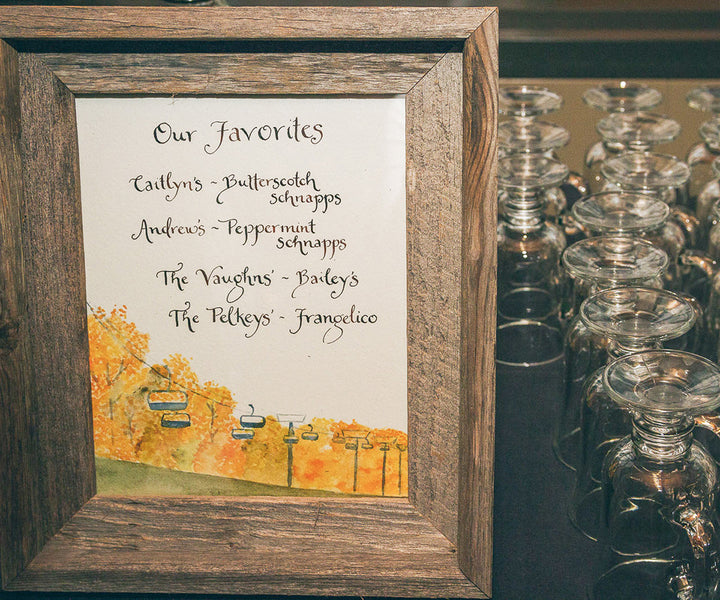 Our Favorites
Caitlyn's ~ Butterscotch
schnapps
Andrew's ~ Peppermint
schnapps
The Vaughns' ~ Bailey's
The Pelkeys' ~ Frangelico